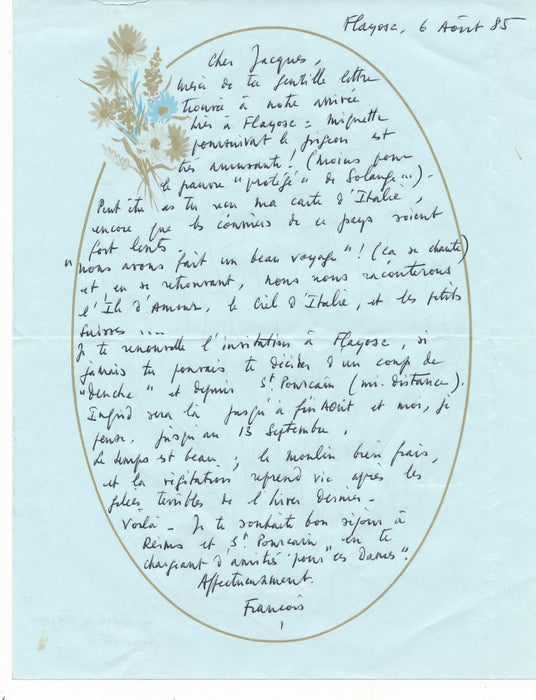 Flayosc, 6 Août 85
Cher Jacques,
merci de ta gentille lettre
trouvée à notre arrivée
hier à Flayosc = Mignette
poursuivant le pigeon est
très amusante ! (moins pour
le pauvre "protégé" de Solange...).
Peut-être as tu reçu ma carte d'Italie,
encore que les courriers de ce pays soient
fort lents.
"nous avons fait un beau voyage" ! (ça se chante)
et en se retrouvant, nous nous raconterons
l'Ile d'Amour, le Ciel d'Italie, et les petits
suisses ....
Je te renouvelle l'invitation à Flayosc, si
jamais tu pouvais te décider d'un coup de
"Denche" et depuis St Pourcain (mi-distance).
Ingrid sera là jusqu'à fin Août et moi, je
pense, jusqu'au 13 Septembre.
Le temps est beau ; le moulin bien frais,
et la végétation reprend vie après les
gelées terribles de l'hiver dernier -
Voilà - Je te souhaite bon séjour à
Reims et St Pourcain en te
chargeant d'amitiés pour "ces Dames".
Affectueusement.
François